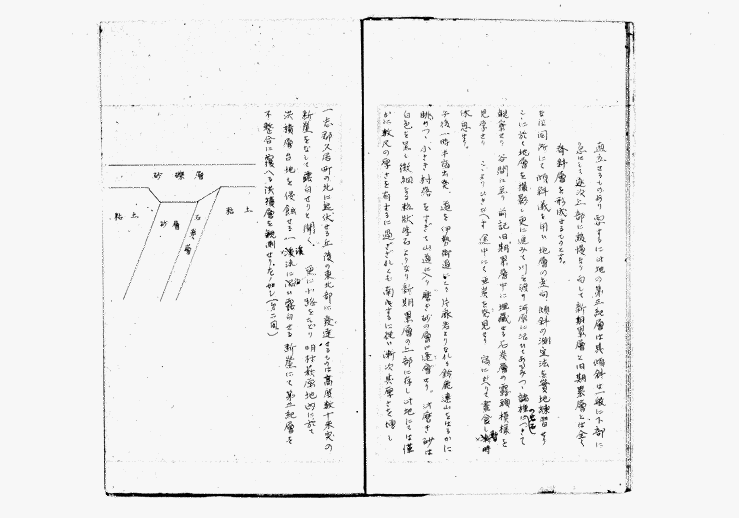 直立せるものあり 要するに此地の第三紀層は其傾斜は一般に下部に
急にして逐次上部に緩慢なり而して新期累層と旧期累層とは全く
斉斜層を形成せるものとす。
なほ同所にて傾斜儀を用い地層の走向傾斜の測定法を実地練習せり
こに於て地層を撮影し更に進みて川を渡り河岸に沿いて
観察せり 谷間に至り前記旧期累層中に埋蔵せる石炭層の露頭模様を
見学せり これより引きかへす途中にて
休息す。
午後一時半出発、道を伊勢街道にとり片麻岩よりなれる鈴鹿連山をはるかに
眺めつつ小さき村落をすぎて山道に入り磨き砂の層に逢会せり。此磨き砂は
白色を呈し微細なる粒状浮石よりなり新期累層の上部に存し此地にては僅
かに数尺の厚さを有するに過ぎざれども南するに従い漸次其厚さを増し
一志郡久居町の北に起伏せる丘陵の東北部に発達せるものは高度数十米突の
断崖をなして露白せりと聞く。 更に小路をたどり明村萩原地内に於て
洪積層台地を侵蝕せる一渓流に沿い露白せる断崖にて第三紀層を
不整合に覆へる洪積層を観測せり。(第二図)
砂礫層
粘土
砂層
石炭層
粘土